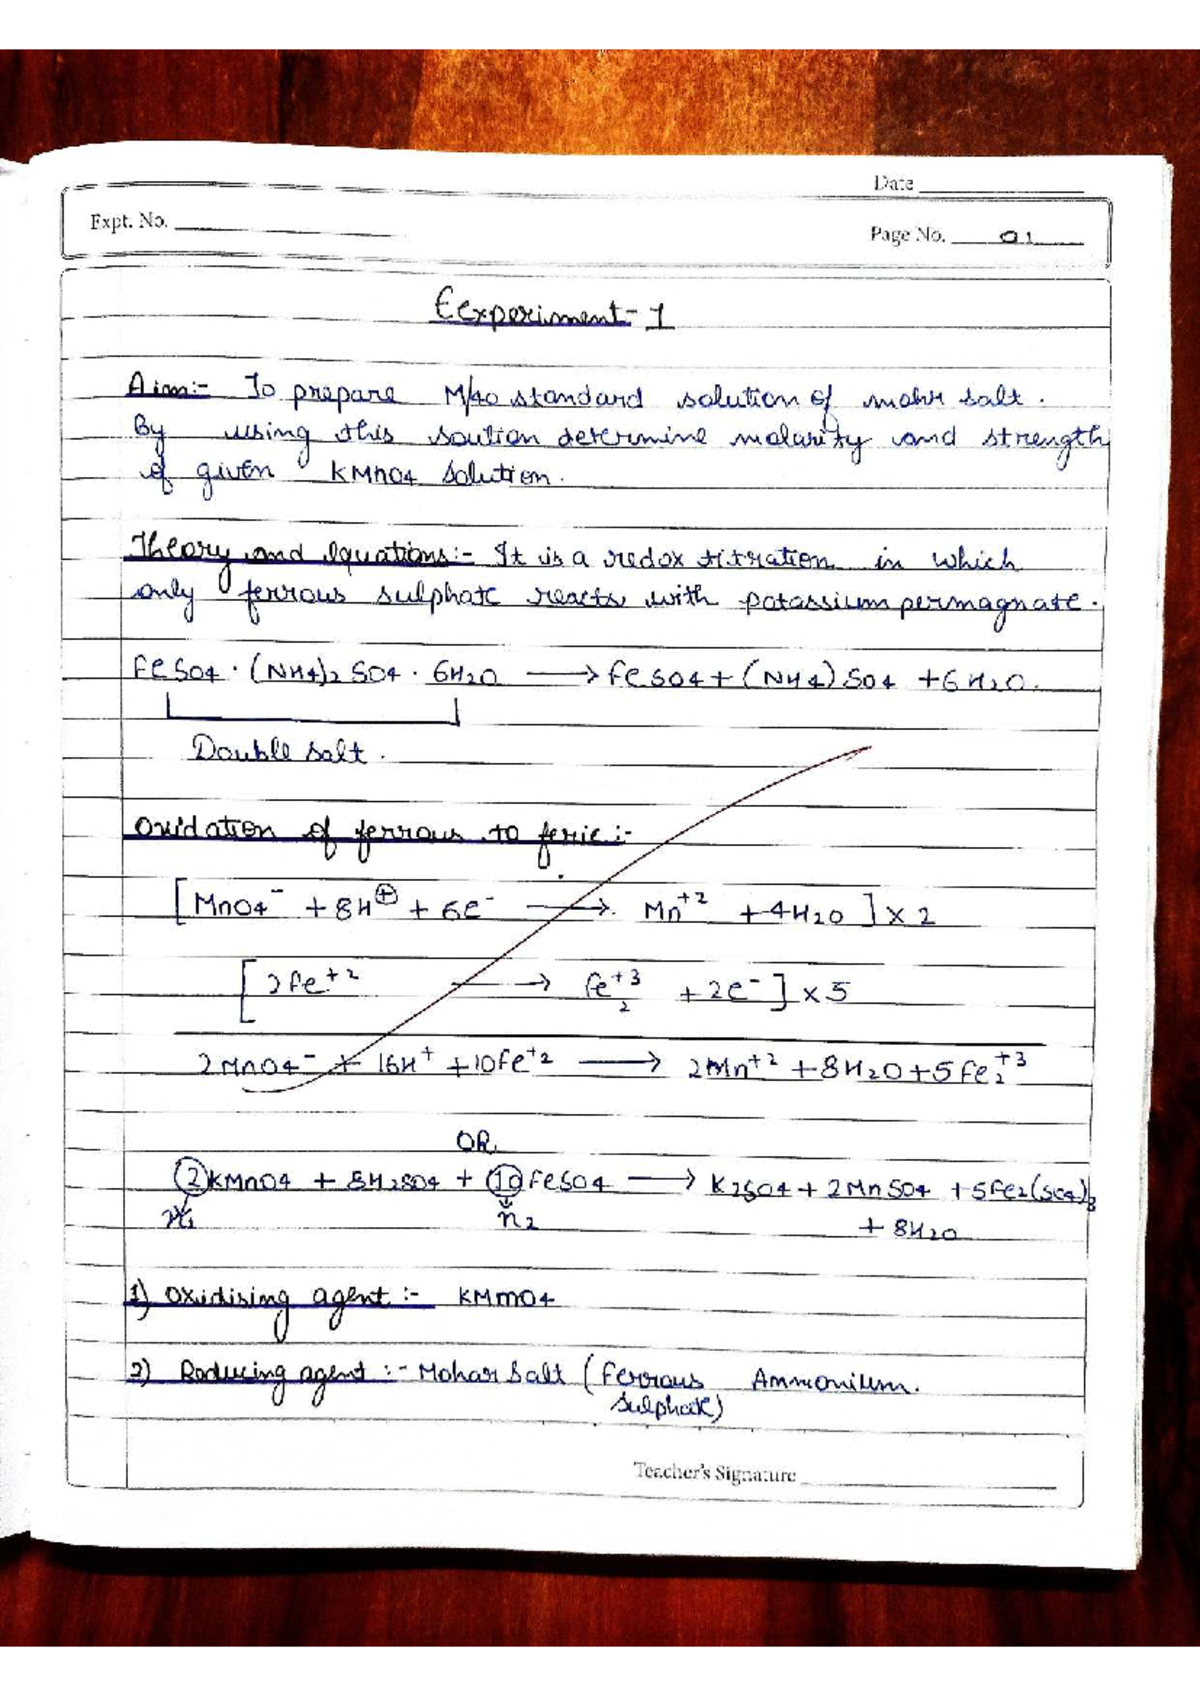 Date
Expt. No.
Page No. 01
Eexperiment-1
Aim:- To prepare M/40 standard solution of mohr salt.
By using this soution determine molarity and strength
of given KMnO4 solution.
Theory and equations:- It is a redox titration in which
only ferrous sulphate reacts with potassium permagnate.
FeSO4 · (NH4)2 SO4 · 6H2O ⟶ FeSO4 + (NH4) SO4 + 6H2O.
Double salt.
Oxidation of ferrous to feric:-
[MnO4⁻ + 8H⊕ + 6e⁻ ⟶ Mn⁺² + 4H2O ] x 2
[2Fe⁺² ⟶ Fe2⁺³ + 2e⁻] x 5
2MnO4⁻ + 16H⁺ + 10Fe⁺² ⟶ 2Mn⁺² + 8H2O + 5Fe2⁺³
OR
2KMnO4 + 8H2SO4 + 10FeSO4 ⟶ K2SO4 + 2MnSO4 + 5Fe2(SO4)3
n1 n2 + 8H2O
1) Oxidising agent :- KMnO4
2) Reducing agent :- Mohar Salt (Ferrous Ammonium.
Sulphate)
Teacher's Signature